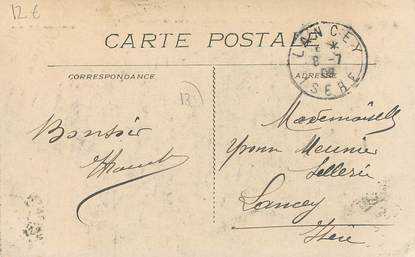 12 €
CARTE POSTALE
CORRESPONDANCE
ADRESSE
LANCEY
8-7
ISERE
13)
Bonsoir
Mademoiselle
Yvonne Meunier
Sellerie
Lancey
Isère